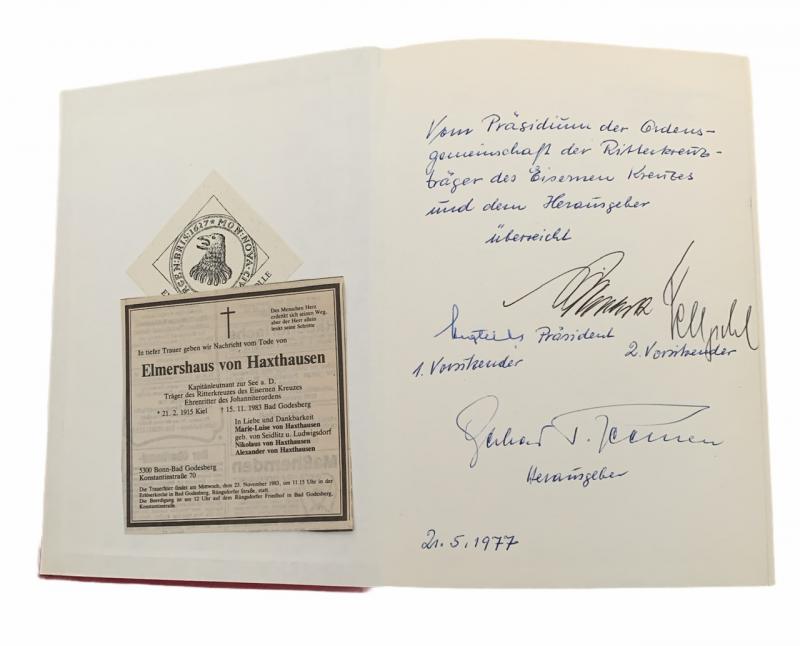 GEN·BRIS·1617★MON·NOVA·CIV
Des Menschen Herz
erdenkt sich seinen Weg,
aber der Herr allein
lenkt seine Schritte
In tiefer Trauer geben wir Nachricht vom Tode von
Elmershaus von Haxthausen
Kapitänleutnant zur See a. D.
Träger des Ritterkreuzes des Eisernen Kreuzes
Ehrenritter des Johanniterordens
* 21. 2. 1915 Kiel † 15. 11. 1983 Bad Godesberg
In Liebe und Dankbarkeit
Marie-Luise von Haxthausen
geb. von Seidlitz u. Ludwigsdorf
Nikolaus von Haxthausen
Alexander von Haxthausen
5300 Bonn-Bad Godesberg
Konstantinstraße 70
Die Trauerfeier findet am Mittwoch, dem 23. November 1983, um 11.15 Uhr in der
Erlöserkirche in Bad Godesberg, Rüngsdorfer Straße, statt.
Die Beerdigung ist um 12 Uhr auf dem Rüngsdorfer Friedhof in Bad Godesberg,
Konstantinstraße.
Vom Präsidium der Ordens-
gemeinschaft der Ritterkreuz-
träger des Eisernen Kreuzes
und dem Herausgeber
überreicht
Präsident
1. Vorsitzender 2. Vorsitzender
Herausgeber
21.5.1977